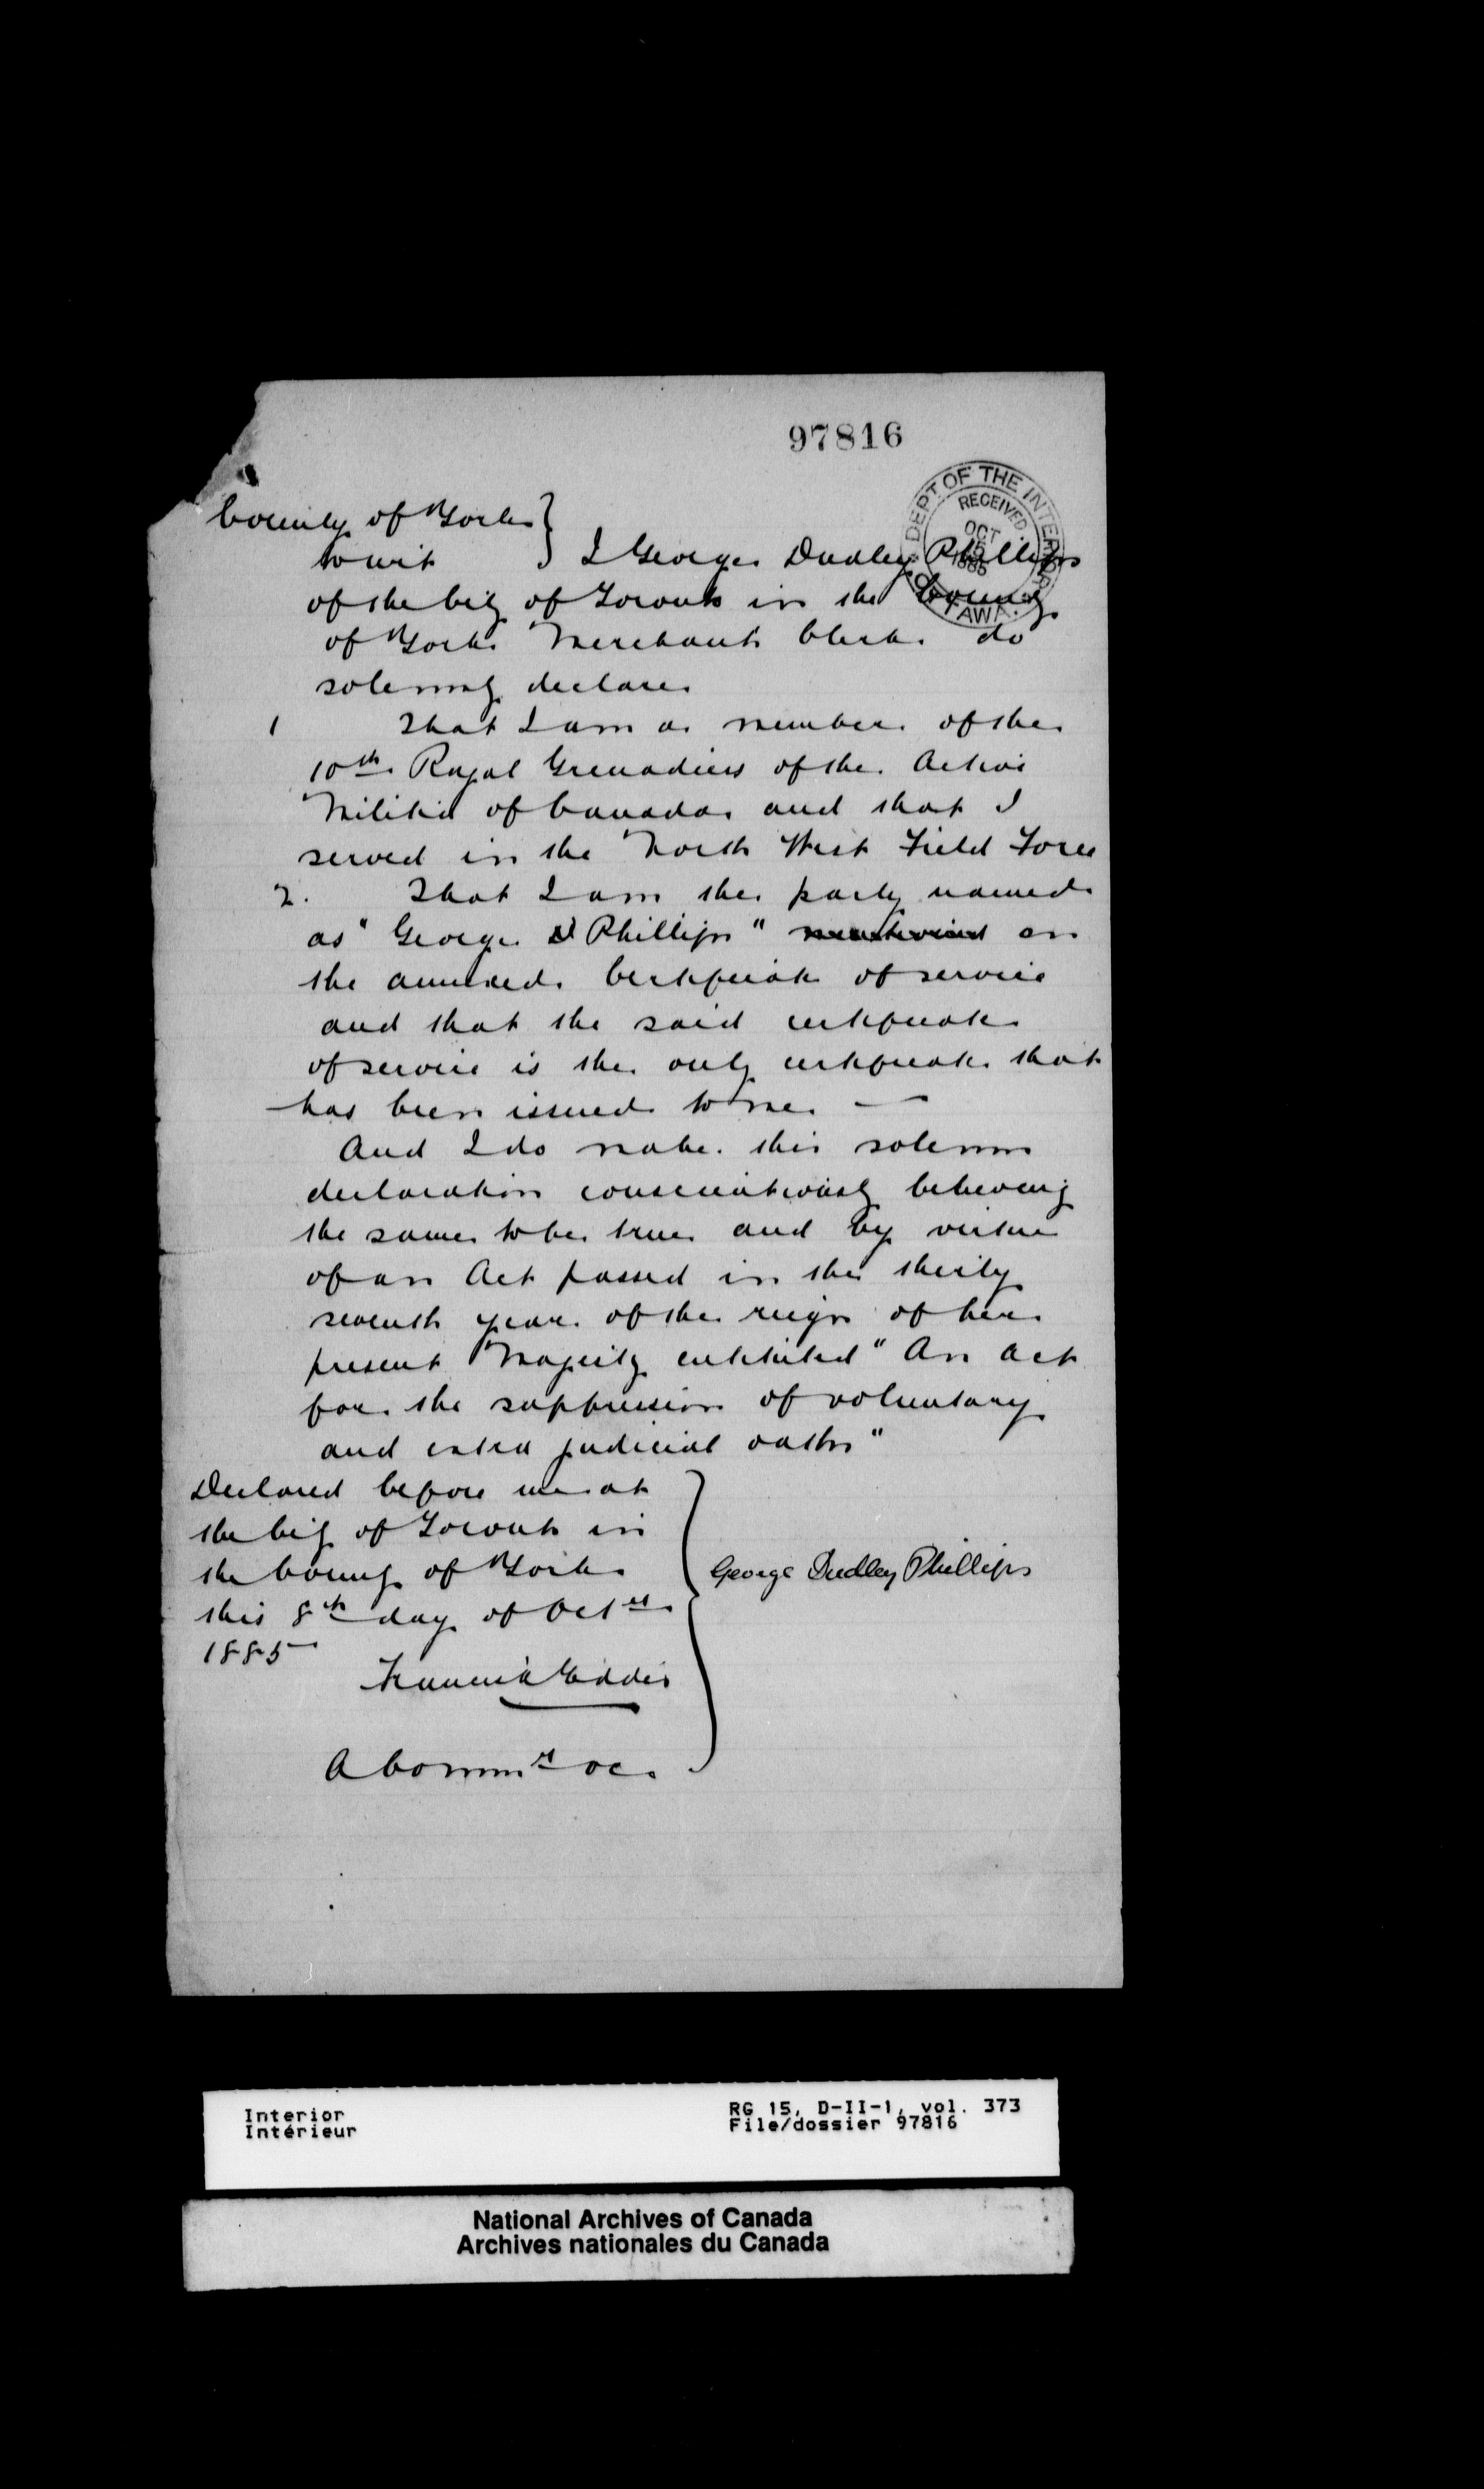 97816
DEPT OF THE INTERIOR
RECEIVED
OCT
1885
OTTAWA
County of York }
to wit } I George Dudley Phillips
of the City of Toronto in the County
of York Merchants Clerk do
solemnly declare
1 That I am a member of the
10th Royal Grenadiers of the Active
Militia of Canada and that I
served in the North West Field Force
2. That I am the party named
as "George D Phillips" in
the annexed Certificate of service
and that the said certificate
of service is the only certificate that
has been issued to me. —
And I do make this solemn
declaration conscientiously believing
the same to be true and by virtue
of an Act passed in the thirty
seventh year of the reign of her
present Majesty entituled "An Act
for the suppression of voluntary
and extra judicial oaths"
Declared before me at
the City of Toronto in
the County of York
this 8th day of Oct
1885
George Dudley Phillips
Francis Eddis
A Commr &c.
Interior
Intérieur
RG 15, D-II-1, vol. 373
File/dossier 97816
National Archives of Canada
Archives nationales du Canada